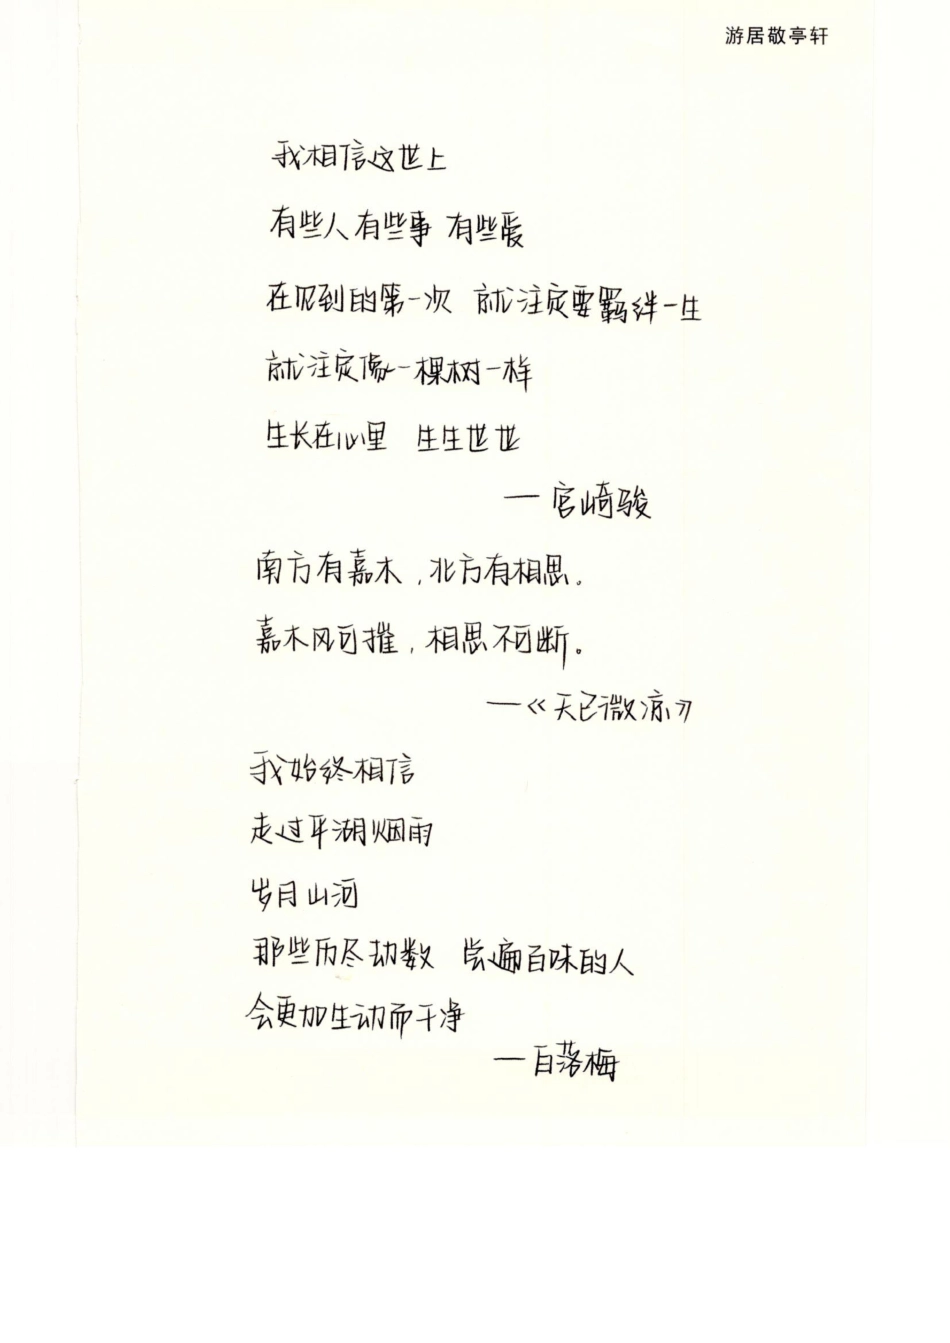 游居敬亭轩
我相信这世上
有些人有些事 有些爱
在见到的第一次 就注定要羁绊一生
就注定像一棵树一样
生长在心里 生生世世
— 宫崎骏
南方有嘉木,北方有相思。
嘉木风可摧,相思不可断。
—《天已微凉》
我始终相信
走过平湖烟雨
岁月山河
那些历尽劫数 尝遍百味的人
会更加生动而干净
— 白落梅